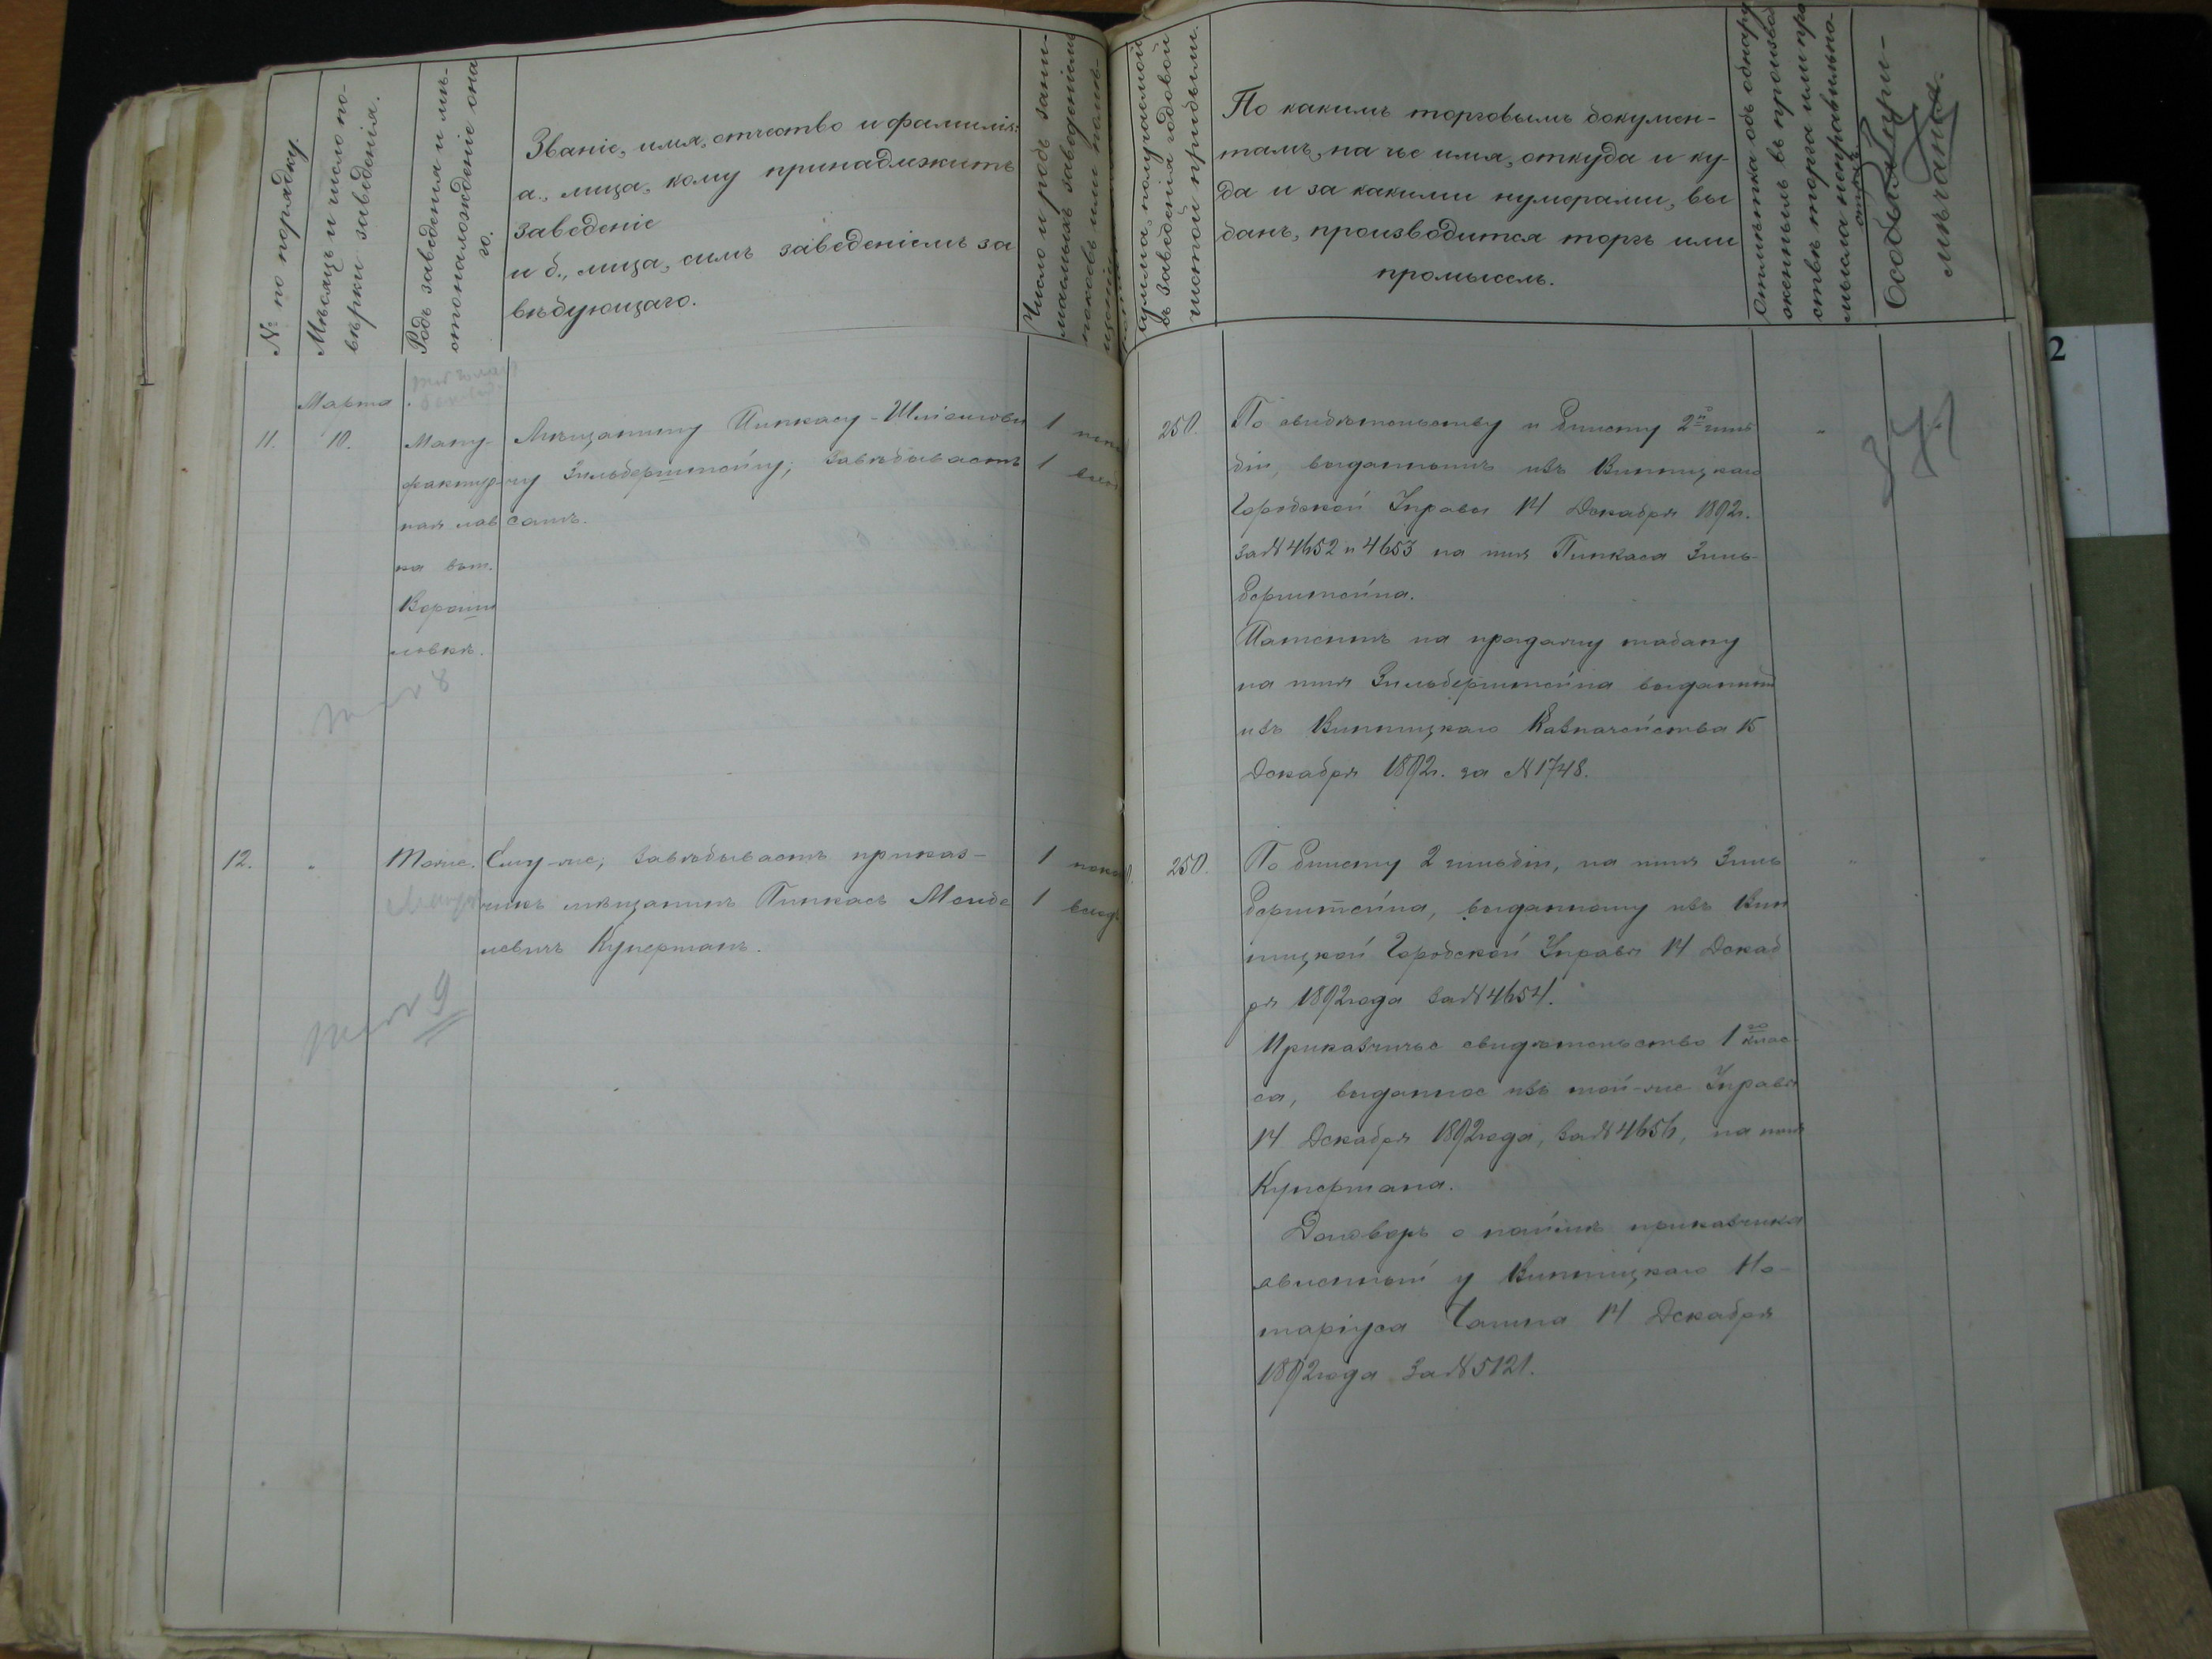 № по порядку.
Мѣсяцъ и число по-
вѣрки заведенія.
Родъ заведенія и мѣ-
стоположеніе она
го.
Званіе, имя, отчество и фамилія:
а., лица, кому принадлежитъ
заведеніе
и б., лица, симъ заведеніемъ за
вѣдующаго.
Число и родъ зани-
маемыхъ заведеніемъ
покоевъ или помѣ-
Сумма, получаемой
въ заведеніи годовой
чистой прибыли.
По какимъ торговымъ докумен-
тамъ, на чье имя, откуда и ку-
да и за какими нумерами, вы
данъ, производится торгъ или
промыселъ.
Отмѣтка объ обнару
женныхъ въ производ
ствѣ торга или про
мысла неправильно-
стяхъ.
Особыя При-
мѣчанія.
Марта
11.
10.
Ману-
фактур-
ная лав
ка въ м.
Вороши
ловкѣ.
8
Мѣщанину Пинкасу-Шліомови
чу Зильберштейну; завѣдываетъ
самъ.
1
1
250.
По свидѣтельству и билету 2й гиль
діи, выданнымъ изъ Винницкаго
Городской Управы 14 Декабря 1892г.
за № 4652 и 4653 на имя Пинкаса Зиль-
берштейна.
Патентъ на продажу табаку
на имя Зильберштейна выданный
изъ Винницкаго Казначейства 15
Декабря 1892г. за № 1748.
"
12.
"
Тоже.
9
Ему-же; завѣдываетъ приказ-
чикъ мѣщанинъ Пинкасъ Менде
левичъ Куперманъ.
1
1 входъ
250.
По билету 2 гильдіи, на имя Зиль
берштейна, выданному изъ Вин
ницкой Городской Управы 14 Декаб
ря 1892 года за № 4654.
Приказчичье свидѣтельство 1го клас-
са, выданное изъ той-же Управы
14 Декабря 1892 года, за № 4656, на имя
Купермана.
Договоръ о наймѣ приказчика
явленный у Винницкаго Но-
таріуса 14 Декабря
1892 года за № 5121.
"
"